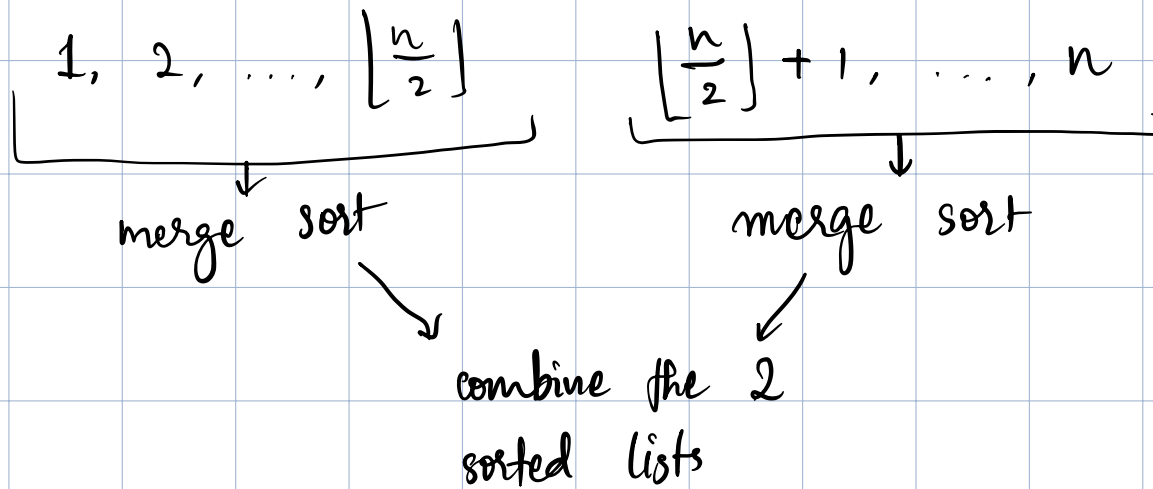 1, 2, ..., ⌊n/2⌋ ⌊n/2⌋ + 1, ..., n
merge sort merge sort
combine the 2
sorted lists